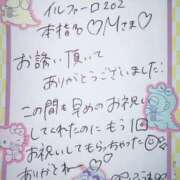 イルフィーロ202
本指名♡Mさま♡
お誘い頂いて
ありがとうございました!
この間も早めのお祝い
してくれたのにもう1回
お祝いしてもらっちゃった
ありがとねー♡